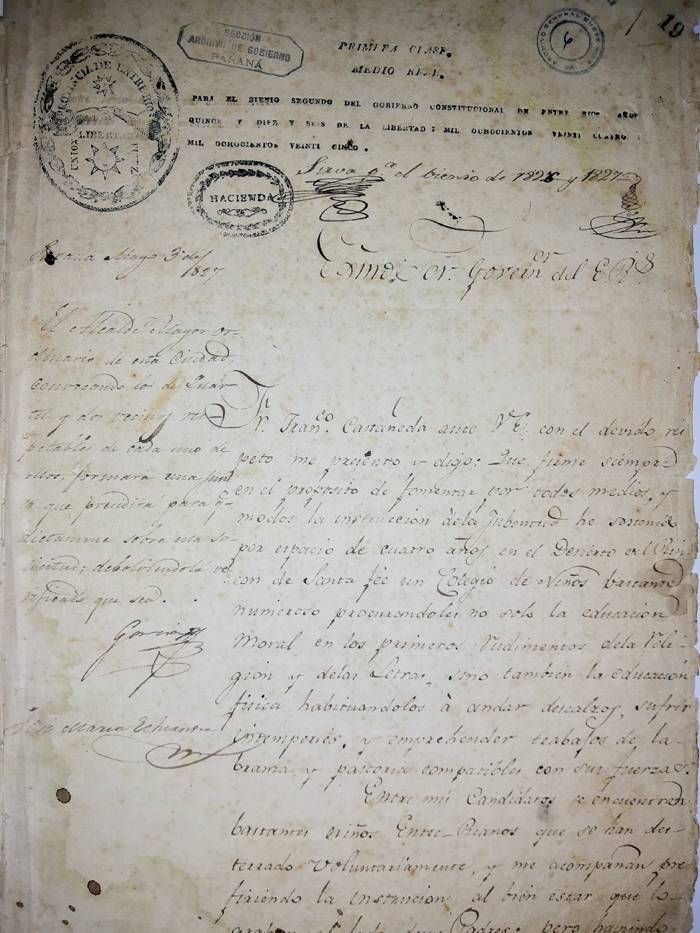 SECCIÓN
ARCHIVO DE GOBIERNO
PARANÁ
6
1 19
PRIMERA CLASE.
MEDIO REAL.
PROVINCIA DE ENTRE RIOS
UNION LIBERTAD
PARA EL BIENIO SEGUNDO DEL GOBIERNO CONSTITUCIONAL DE ENTRE RIOS AÑOS
QUINCE Y DIEZ Y SEIS DE LA LIBERTAD: MIL OCHOCIENTOS VEINTI CUATRO,
MIL OCHOCIENTOS VEINTI CINCO.
Sirva pa. el bienio de 1826 y 1827
HACIENDA
Mayo 3 de
1827
Exmo. Sor. Goveor. del E. Rs.
El Alcalde Mayor or-
dinario de esta Ciudad,
convocando los de Quar-
tel, y dos vecinos res-
petables de cada uno de
ellos, formará una jun
ta que presidirá para q.
dictamine sobre esta so-
licitud; debolviendola ve-
rificado que sea.
José Maria Echuarria
Fr. Franco. Castañeda ante V. E. con el devido res
peto me presento y digo: Que firme siempre
en el proposito de fomentar por todos medios, y
modos la instruccion dela Jubentud he sostenido
por espacio de cuatro años en el Decierto del Rin
con de Santa fée un Colegio de Niños bastante
numeroso procurandoles no solo la educacion
Moral en los primeros rudimentos dela Reli-
gion y delas Letras, sino tambien la educacion
fisica habituandolos à andar descalzos, sufrir
intemperies, y emprehender trabajos de la-
branza, y pastoreo compatibles con sus fuerzas.
Entre mis Candidatos se encuentran
bastantes niños Entre-Rianos que se han des-
terrado Voluntariamente, y me acompañan pre
firiendo la instrucion al bien estar que lo-
al lado de sus Padres: pero haviendo